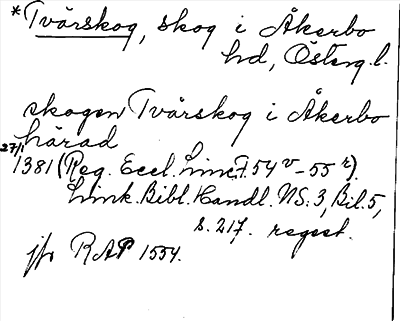 *Tvärskog, skog i Åkerbo
hd, Österg.l.
skogen Tvärskog i Åkerbo
härad
27/1 1381 (Reg. Eccl. Linc. F. 54 v – 55 r).
Link. Bibl. Handl. NS: 3, Bil. 5,
s. 217. regest.
jfr RAP 1554.